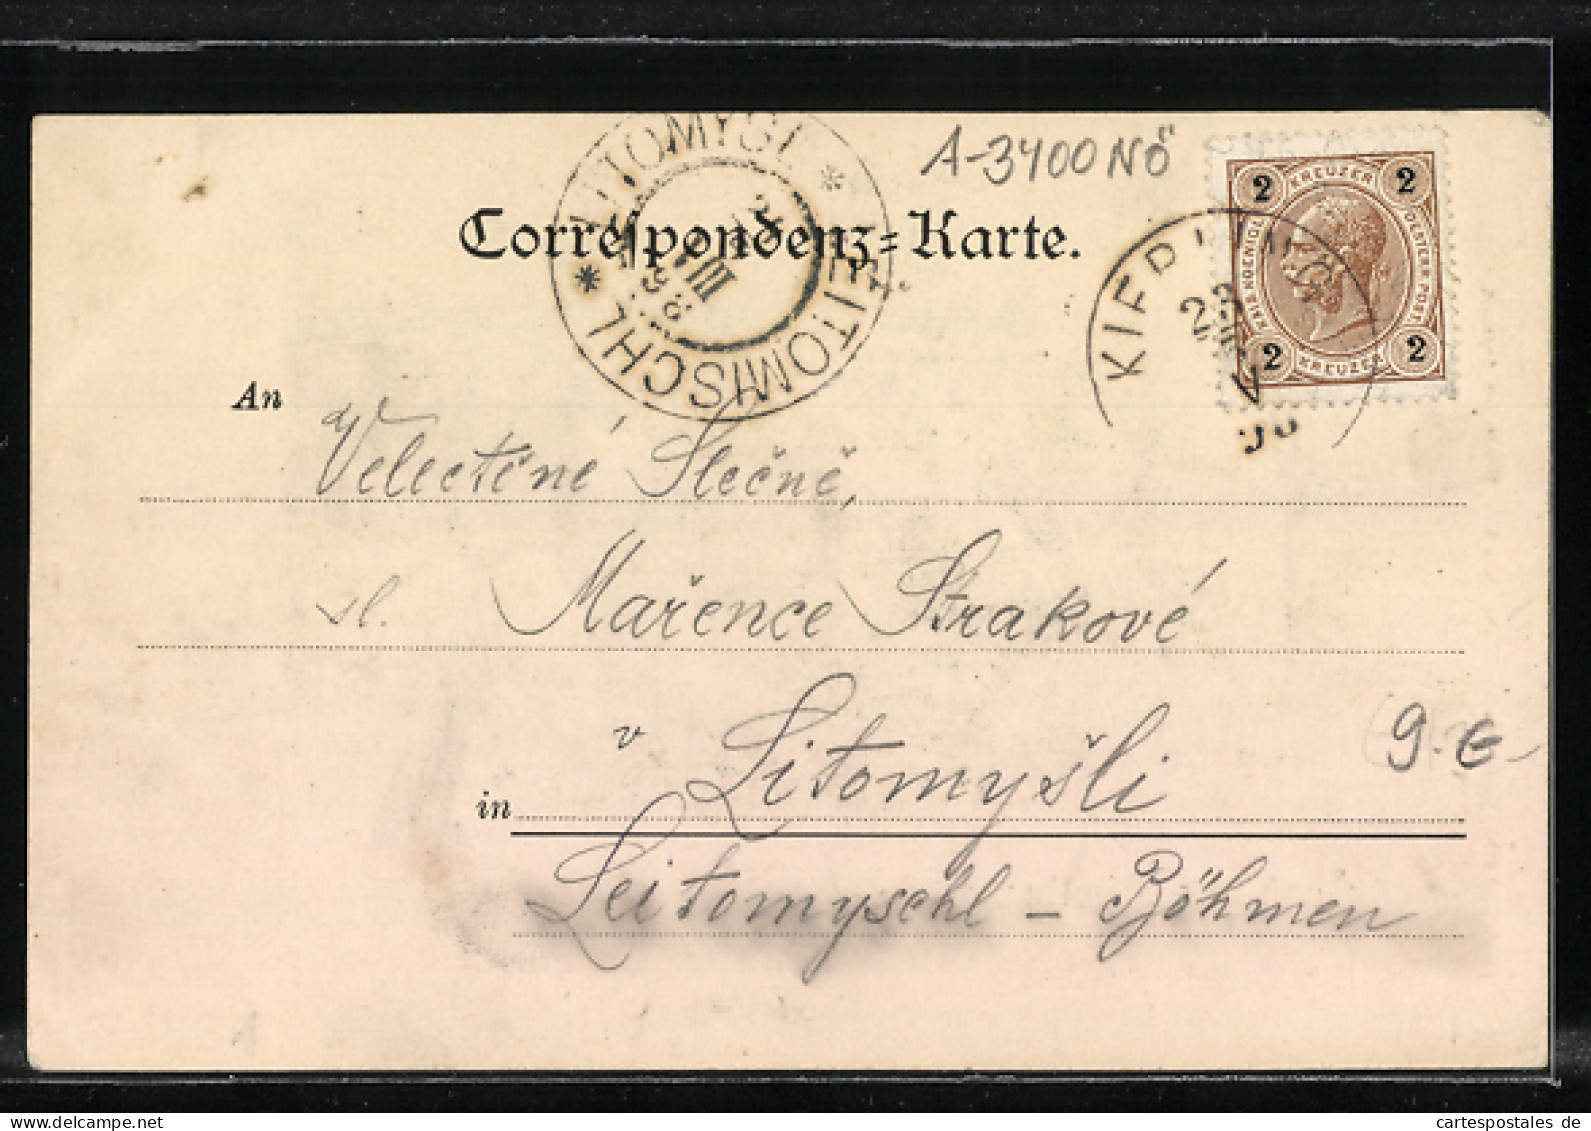 A-3400 NÖ
Correspondenz-Karte.
LITOMYSL * LEITOMISCHL *
12
VIII
98
KIERLING
2 KREUZER 2
KAIS. KOENIGL. OESTERR. POST.
2 KREUZER 2
An
Velectěné Slečně,
sl. Mařence Strakové
v Litomyšli
9.-€-
in
Leitomyschl - Böhmen
cartespostales de